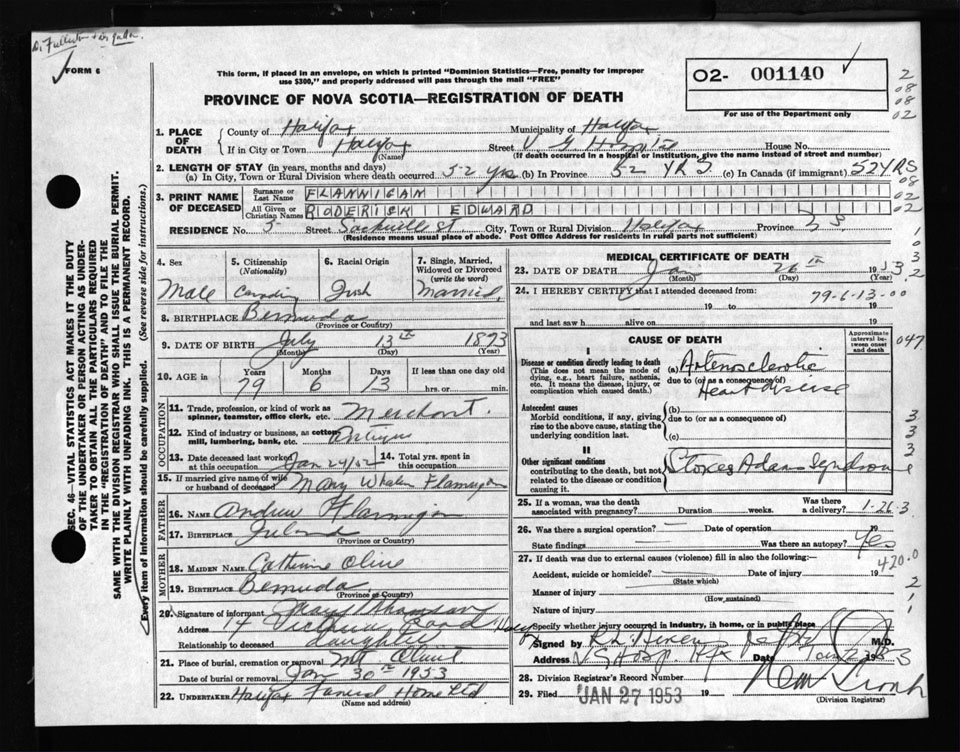 FORM 6
This form, if placed in an envelope, on which is printed "Dominion Statistics—Free, penalty for improper
use $300," and properly addressed will pass through the mail "FREE"
PROVINCE OF NOVA SCOTIA—REGISTRATION OF DEATH
02- 001140
For use of the Department only
1. PLACE OF DEATH
County of Halifax Municipality of Halifax
If in City or Town Halifax Street V. G. Hospital House No.
(Name) (If death occurred in a hospital or institution, give the name instead of street and number)
2. LENGTH OF STAY (in years, months and days)
(a) In City, Town or Rural Division where death occurred 52 yrs (b) In Province 52 YRS (c) In Canada (if immigrant) 52 YRS
3. PRINT NAME OF DECEASED
Surname or Last Name FLANNIGAN
All Given or Christian Names RODERICK EDWARD
RESIDENCE No. 5 Street Sackville St City, Town or Rural Division Halifax Province N S
(Residence means usual place of abode. Post Office Address for residents in rural parts not sufficient)
4. Sex Male
5. Citizenship (Nationality) Canadian
6. Racial Origin Irish
7. Single, Married, Widowed or Divorced (write the word) Married
8. BIRTHPLACE Bermuda
(Province or Country)
9. DATE OF BIRTH July 13th 1873
(Month) (Day) (Year)
10. AGE in Years 79 Months 6 Days 13 If less than one day old hrs. or min.
OCCUPATION
11. Trade, profession, or kind of work as spinner, teamster, office clerk, etc. Merchant.
12. Kind of industry or business, as cotton mill, lumbering, bank, etc. Antique
13. Date deceased last worked at this occupation Jan 24/52 14. Total yrs. spent in this occupation
15. If married give name of wife or husband of deceased Mary Whalen Flannigan
FATHER
16. NAME Andrew Flannigan
17. BIRTHPLACE Ireland
(Province or Country)
MOTHER
18. MAIDEN NAME Catherine Olive
19. BIRTHPLACE Bermuda
(Province or Country)
20. Signature of informant
Address 14 Road Halifax
Relationship to deceased daughter
21. Place of burial, cremation or removal Mt Olivet
Date of burial or removal Jan 30th 1953
22. UNDERTAKER Halifax Funeral Home Ltd
(Name and address)
MEDICAL CERTIFICATE OF DEATH
23. DATE OF DEATH Jan 26th 1953
(Month) (Day) (Year)
24. I HEREBY CERTIFY that I attended deceased from:
79-6-13-00
19 to 19
and last saw h alive on 19
CAUSE OF DEATH
Approximate interval between onset and death
I
Disease or condition directly leading to death
(This does not mean the mode of dying, e.g., heart failure, asthenia, etc. It means the disease, injury, or complication which caused death.)
(a) Arteriosclerotic
due to (or as a consequence of)
Heart disease
Antecedent causes
Morbid conditions, if any, giving rise to the above cause, stating the underlying condition last.
(b)
due to (or as a consequence of)
(c)
II
Other significant conditions
contributing to the death, but not related to the disease or condition causing it.
Stokes Adams Syndrome
25. If a woman, was the death associated with pregnancy? Duration weeks. Was there a delivery?
1-26-3
26. Was there a surgical operation? Date of operation 19
State findings Was there an autopsy? Yes
27. If death was due to external causes (violence) fill in also the following:—
420.0
Accident, suicide or homicide? Date of injury 19
(State which)
Manner of injury
(How sustained)
Nature of injury
Specify whether injury occurred in industry, in home, or in public place
Signed by M.D.
Address V G Hosp. Hfx Date 1953
28. Division Registrar's Record Number
29. Filed JAN 27 1953 19
(Division Registrar)
SEC. 46—VITAL STATISTICS ACT MAKES IT THE DUTY
OF THE UNDERTAKER OR PERSON ACTING AS UNDER-
TAKER TO OBTAIN ALL THE PARTICULARS REQUIRED
IN THE "REGISTRATION OF DEATH" AND TO FILE THE
SAME WITH THE DIVISION REGISTRAR WHO SHALL ISSUE THE BURIAL PERMIT.
WRITE PLAINLY WITH UNFADING INK. THIS IS A PERMANENT RECORD.
Every item of information should be carefully supplied. (See reverse side for instructions.)
2
08
08
02
08
02
02
1
0
3
2
047
3
3
3
2
1
1